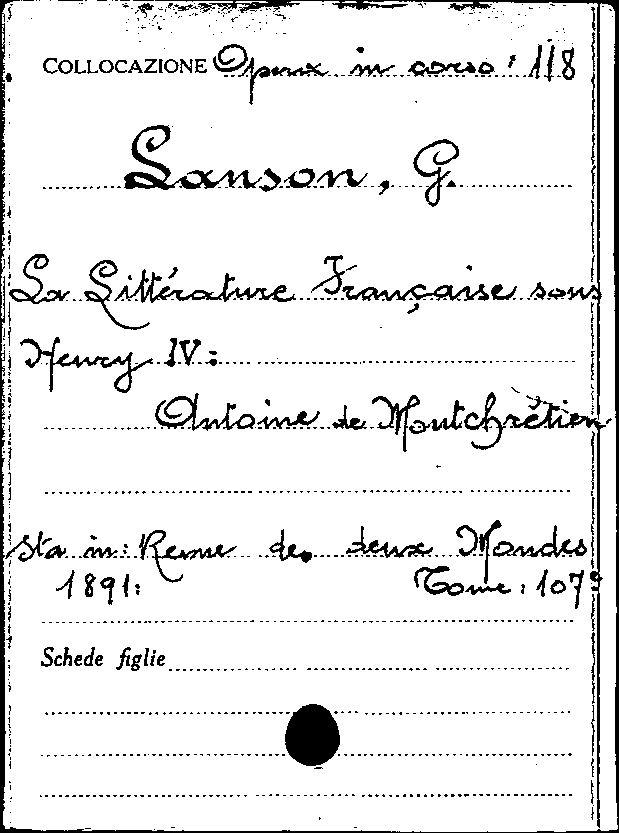 COLLOCAZIONE Opera in corso : 118
Lanson, G.
La Littérature Française sous
Henry IV :
Antoine de Montchrétien
Sta in: Revue de deux Mondes
1891: Tome : 107º
Schede figlie